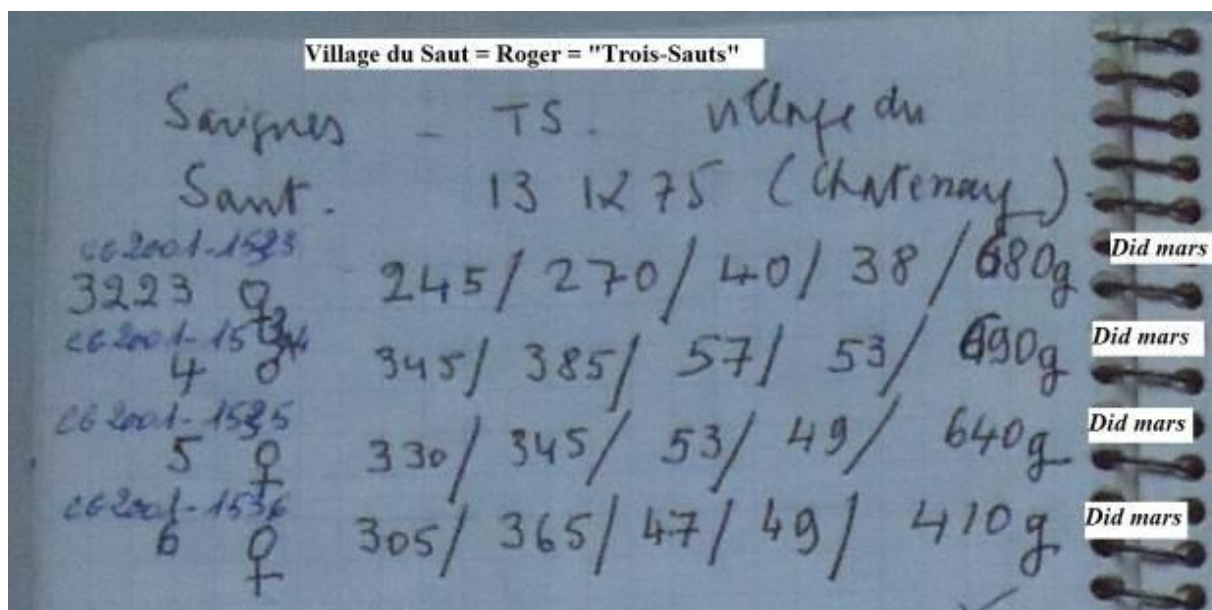 Village du Saut = Roger = "Trois-Sauts"
Sarigues - TS. village du
Saut. 13 IX 75 (Chatenay)
CG2001-1533
3223 ♀ 245/ 270/ 40/ 38/ 680g Did mars
CG2001-1534
4 ♂ 345/ 385/ 57/ 53/ 690g Did mars
CG2001-1535
5 ♀ 330/ 345/ 53/ 49/ 640g Did mars
CG2001-1536
6 ♀ 305/ 365/ 47/ 49/ 410g Did mars